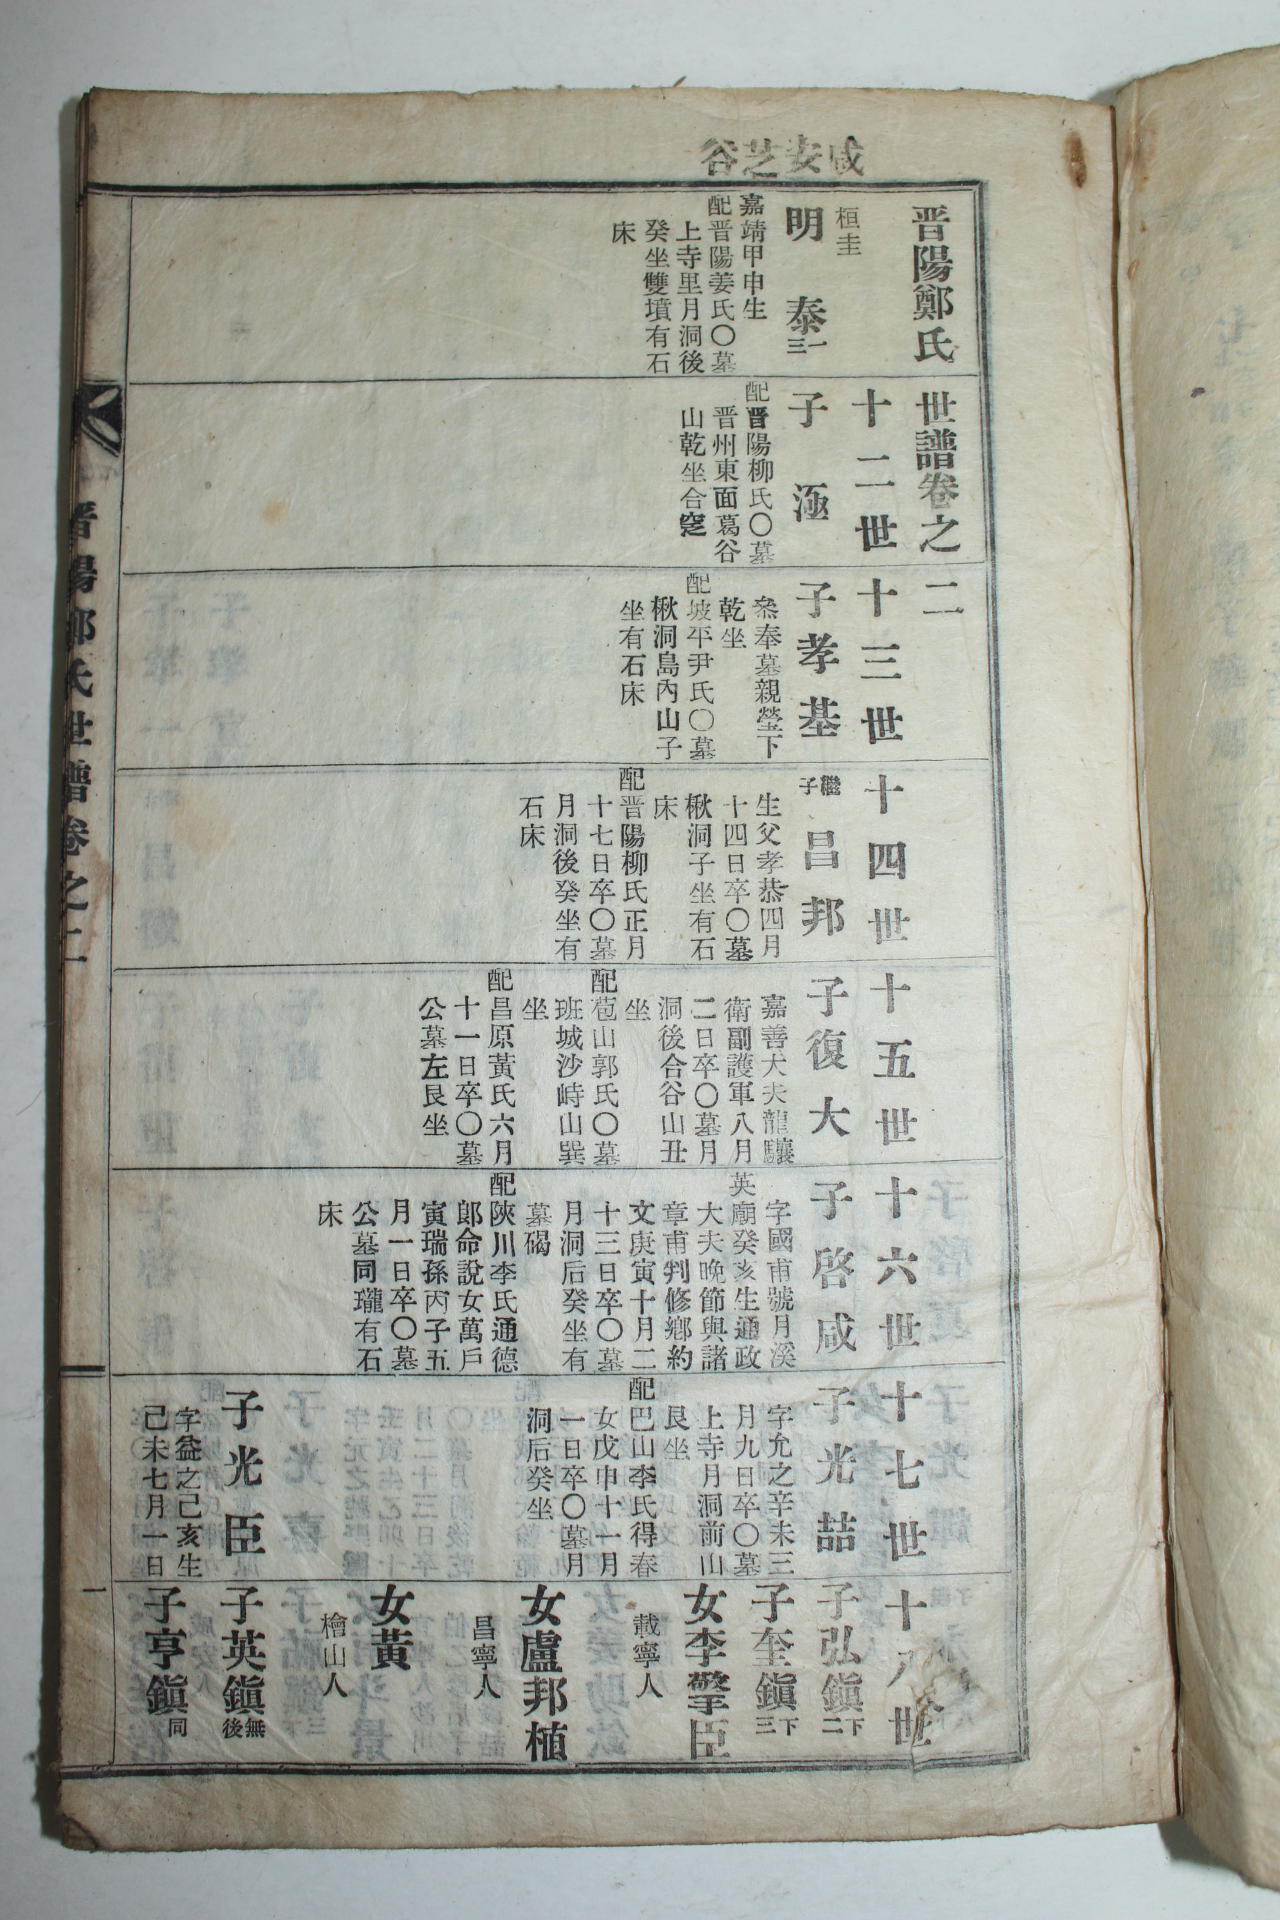 咸安芝谷
晋陽鄭氏世譜卷之二
桓圭
明泰一三
嘉靖甲申生
配晋陽姜氏〇墓
上寺里月洞後
癸坐雙墳有石
床
十二世
子
配晋陽柳氏〇墓
晋州東面葛谷
山乾坐合窆
十三世
子孝基
叅奉墓親塋下
乾坐
配坡平尹氏〇墓
楸洞島內山子
坐有石床
十四世
繼子昌邦
生父孝恭四月
十四日卒〇墓
楸洞子坐有石
床
配晋陽柳氏正月
十七日卒〇墓
月洞後癸坐有
石床
十五世
子復大
嘉善大夫龍驤
衛副護軍八月
二日卒〇墓月
洞後合谷山丑
坐
配苞山郭氏〇墓
班城沙峙山巽
坐
配昌原黃氏六月
十一日卒〇墓
公墓左艮坐
十六世
子啓咸
字國甫號月溪
英廟癸亥生通政
大夫晚節與諸
章甫判修鄕約
文庚寅十月二
十三日卒〇墓
月洞后癸坐有
墓碣
配陜川李氏通德
郎命說女萬戶
寅瑞孫丙子五
月一日卒〇墓
公墓同壠有石
床
十七世
子光喆
字允之辛未三
月九日卒〇墓
上寺月洞前山
艮坐
配巴山李氏得春
女戊申十一月
一日卒〇墓月
洞后癸坐
子光臣
字益之己亥生
己未七月一日
十八世
子弘鎭下二
子奎鎭下三
女李擎臣
載寧人
女盧邦植
昌寧人
女黃
檜山人
子英鎭無後
子亨鎭同
晋陽鄭氏世譜卷之二
一